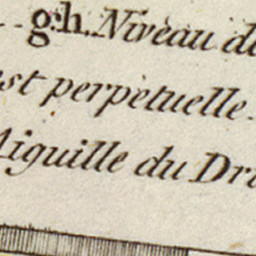 g.h. Niveau de
est perpétuelle.
Aiguille du Dru